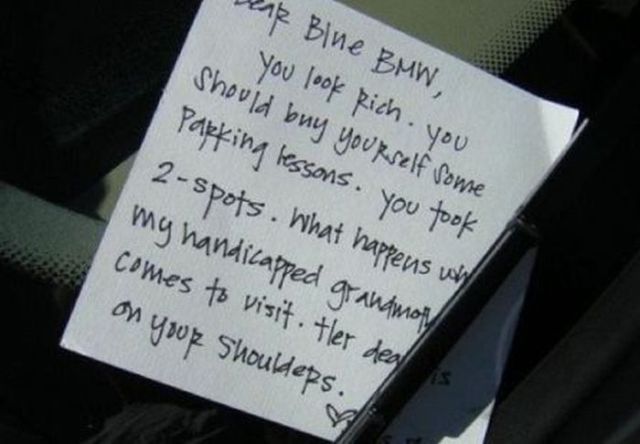 Dear Blue BMW,
You look rich. You
Should buy yourself some
Parking lessons. You took
2-spots. What happens
my handicapped
comes to visit. Her
on your shoulders.
is